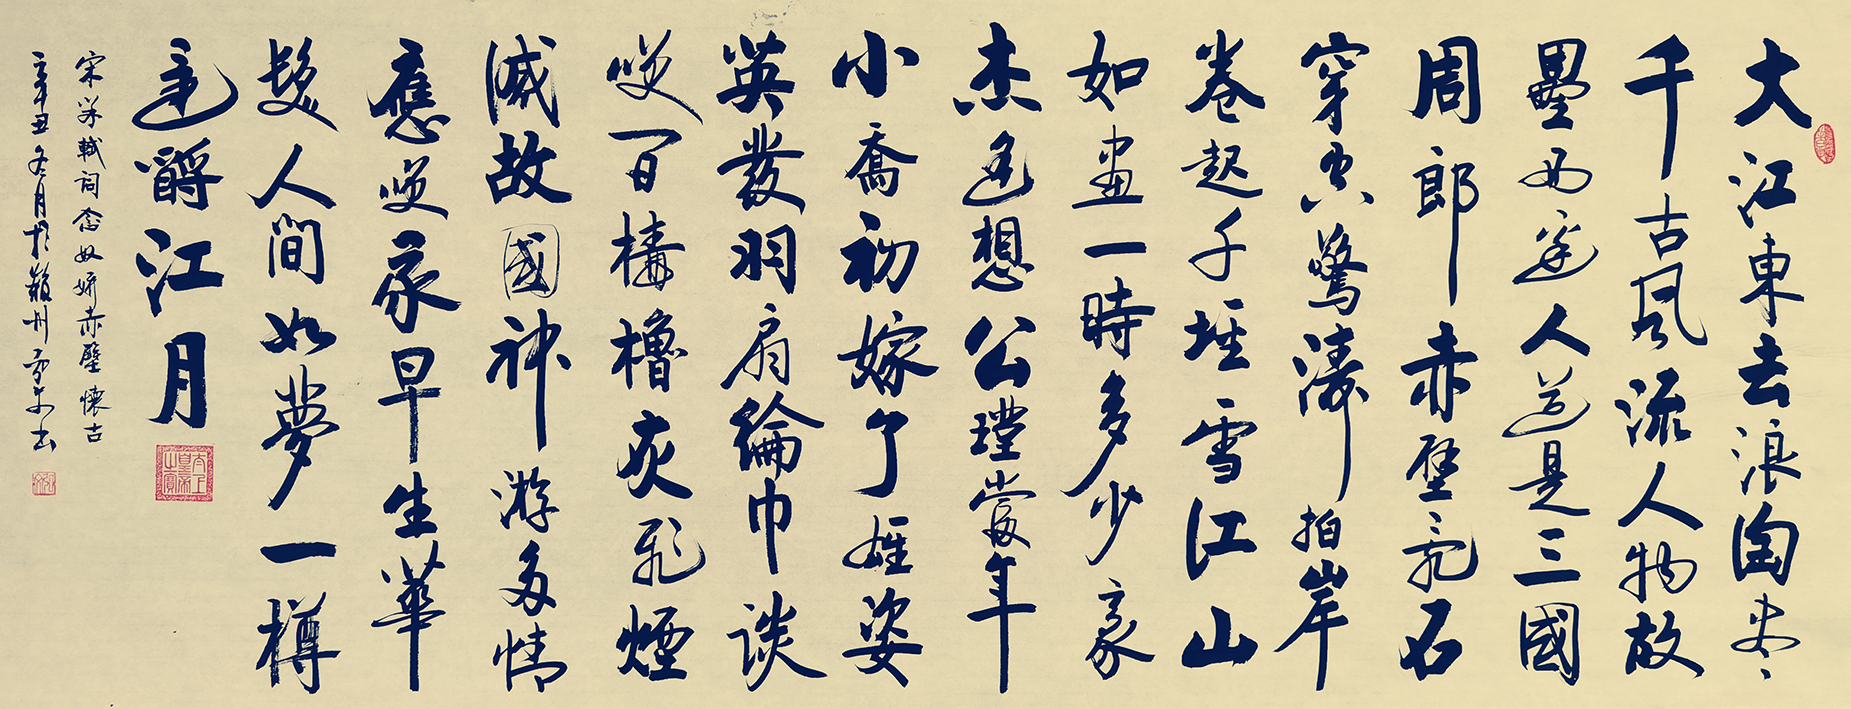 大江東去浪淘尽
千古風流人物故
壘西邊人道是三國
周郎赤壁亂石
穿空驚濤拍岸
卷起千堆雪江山
如畫一時多少豪
杰遙想公瑾當年
小喬初嫁了雄姿
英發羽扇綸巾談
咲間檣櫓灰飛煙
滅故國神游多情
應咲我早生華
髮人間如夢一樽
還酹江月
宋蘇軾詞念奴嬌赤壁懷古
辛丑冬月於穎州